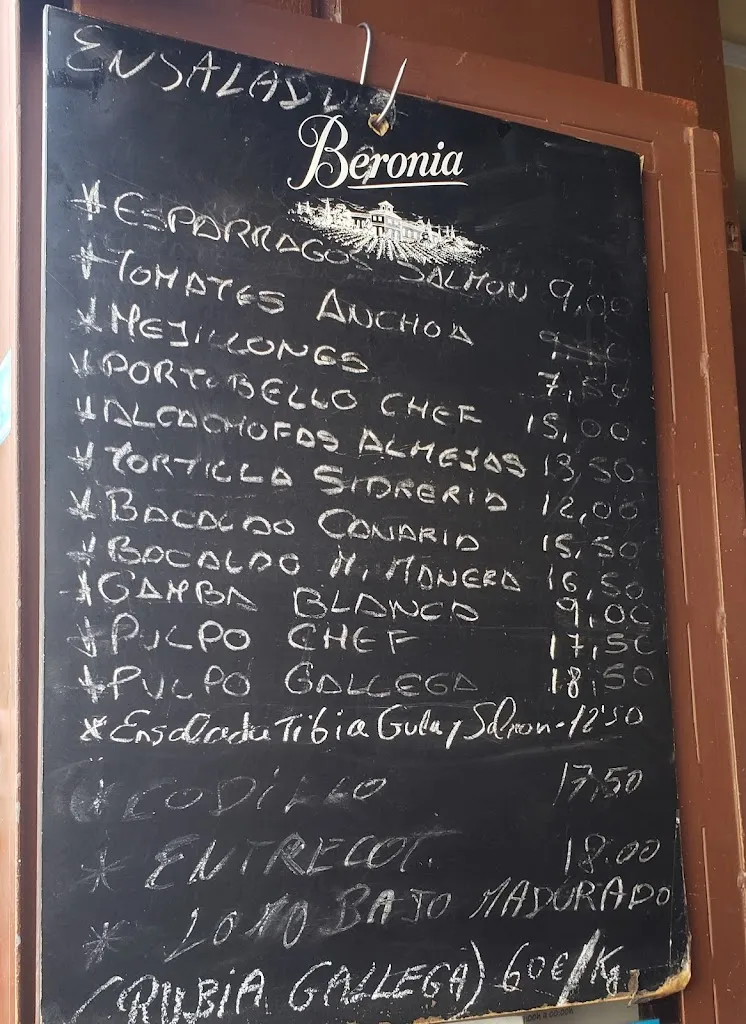 ENSALAD
Beronia
* ESPARRAGOS SALMON 9,00
* TOMATES ANCHOA
* MEJILLONES 7,50
* PORTOBELLO CHEF 15,00
* ALCACHOFAS ALMEJAS 13,50
* TORTILLA SIDRERIA 12,00
* BACALAO CANARIO 15,50
* BACALAO M. MANERA 16,50
* GAMBA BLANCA 9,00
* PULPO CHEF 17,50
* PULPO GALLEGA 18,50
* Ensalada Tibia Gula y Salmon - 12'50
* CODILLO 17,50
* ENTRECOT. 18.00
* LOMO BAJO MADURADO
(RUBIA GALLEGA) 60€/Kg